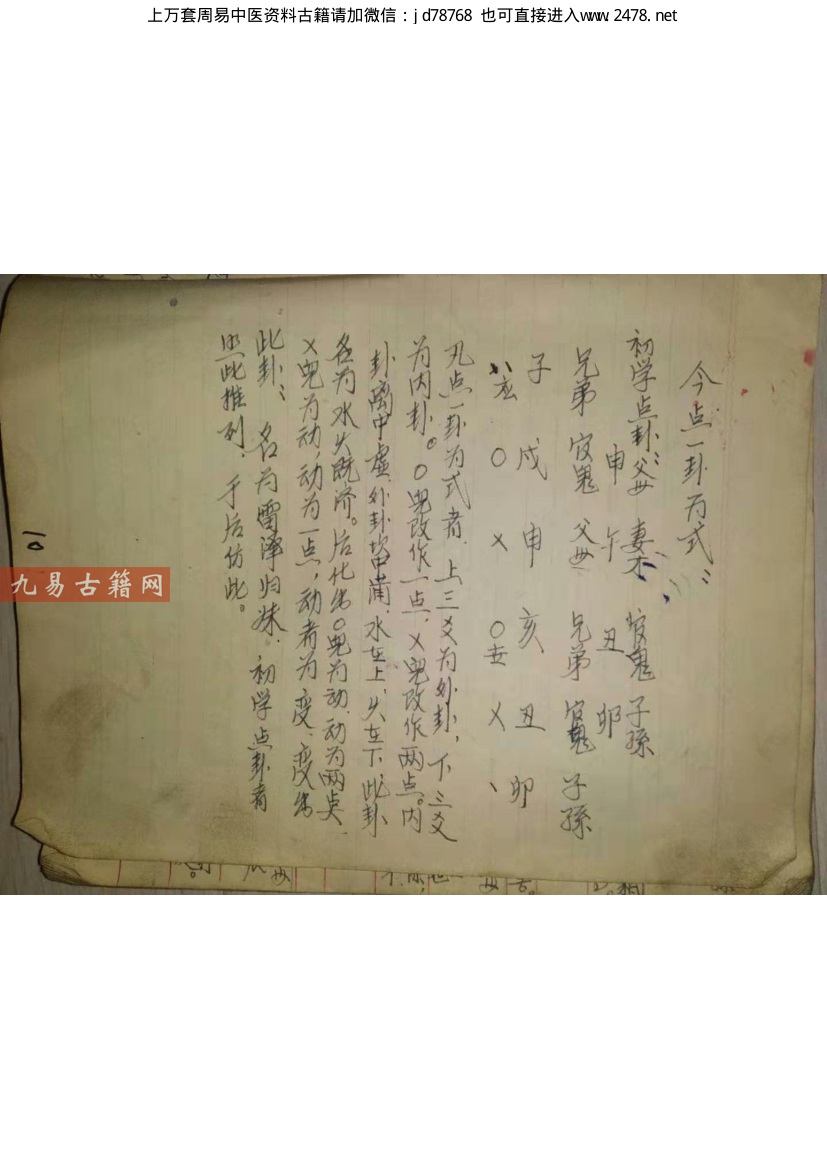 上万套周易中医资料古籍请加微信：jd78768 也可直接进入www.2478.net
今点一卦为式：
初学点卦：父母 妻才 官鬼 子孫
申 午 丑 卯
兄弟 官鬼 父母 兄弟 官鬼 子孫
子 戌 申 亥 丑 卯
〃应 〇 X 〇世 X 丶
凡点一卦为式者、上三爻为外卦、下三爻
为内卦。〇兜改作一点、X兜改作两点。内
卦离中虚、外卦坎中满、水在上、火在下、此卦
名为水火既济。后化出〇兜为动、动为两点、
X兜为动，动为一点，动者为变、变出
此卦：名为雷泽归妹、初学点卦者
照此推列、于后仿此。
10
九易古籍网